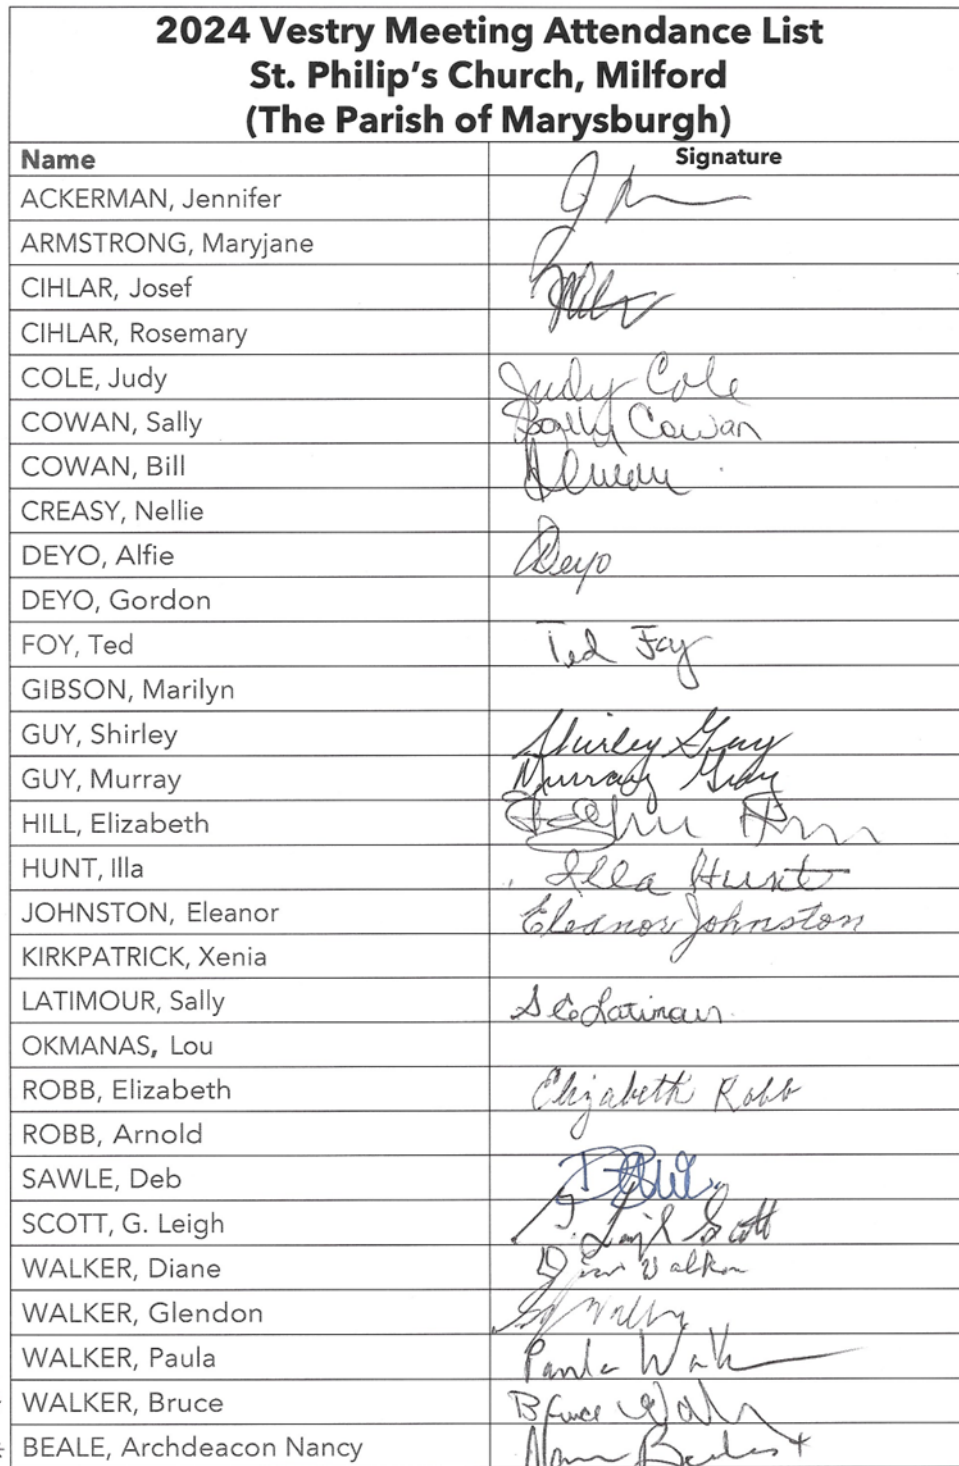 2024 Vestry Meeting Attendance List
St. Philip's Church, Milford
(The Parish of Marysburgh)
Name Signature
ACKERMAN, Jennifer
ARMSTRONG, Maryjane
CIHLAR, Josef
CIHLAR, Rosemary
COLE, Judy Judy Cole
COWAN, Sally Sally Cowan
COWAN, Bill
CREASY, Nellie
DEYO, Alfie Deyo
DEYO, Gordon
FOY, Ted Ted Foy
GIBSON, Marilyn
GUY, Shirley Shirley Guy
GUY, Murray Murray Guy
HILL, Elizabeth
HUNT, Illa Illa Hunt
JOHNSTON, Eleanor Eleanor Johnston
KIRKPATRICK, Xenia
LATIMOUR, Sally S C Latimour
OKMANAS, Lou
ROBB, Elizabeth Elizabeth Robb
ROBB, Arnold
SAWLE, Deb
SCOTT, G. Leigh G. Leigh Scott
WALKER, Diane Diane Walker
WALKER, Glendon
WALKER, Paula Paula Walk
WALKER, Bruce Bruce Walk
BEALE, Archdeacon Nancy